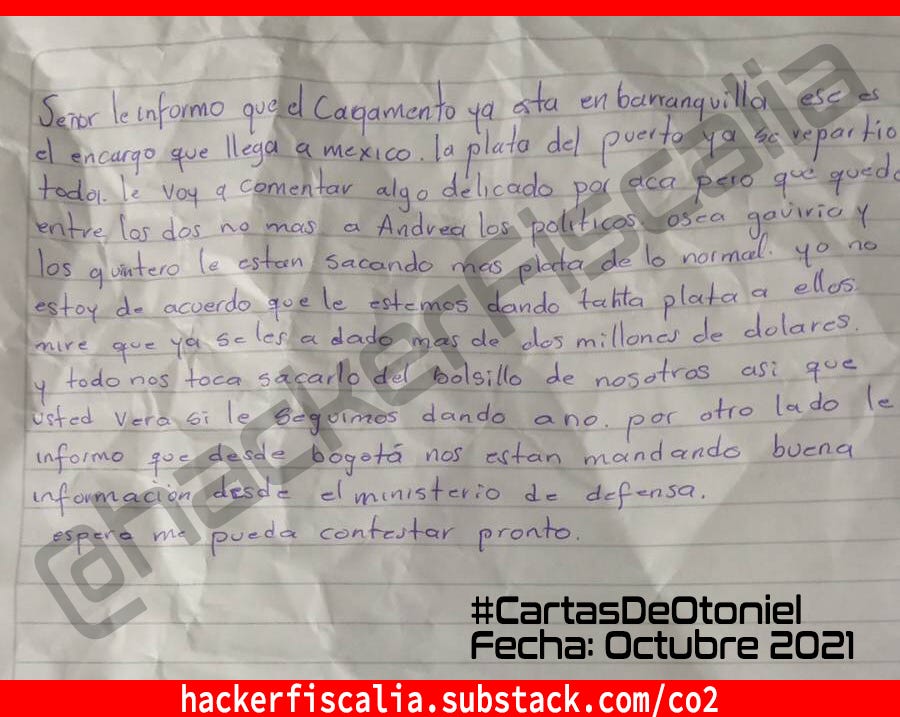 Señor le informo que el Cagamento ya esta en barranquilla ese es
el encargo que llega a mexico. la plata del puerto ya se repartio
todo. le voy a comentar algo delicado por aca pero que quede
entre los dos no mas a Andrea los politicos osea gaviria y
los quintero le estan sacando mas plata de lo normal. yo no
estoy de acuerdo que le estemos dando tanta plata a ellos.
mire que ya se les a dado mas de dos millones de dolares.
y todo nos toca sacarlo del bolsillo de nosotros asi que
usted vera si le seguimos dando ano. por otro lado le
informo que desde bogotá nos estan mandando buena
información desde el ministerio de defensa.
espero me pueda contestar pronto.
@hackerFiscalia
#CartasDeOtoniel
Fecha: Octubre 2021
hackerfiscalia.substack.com/co2